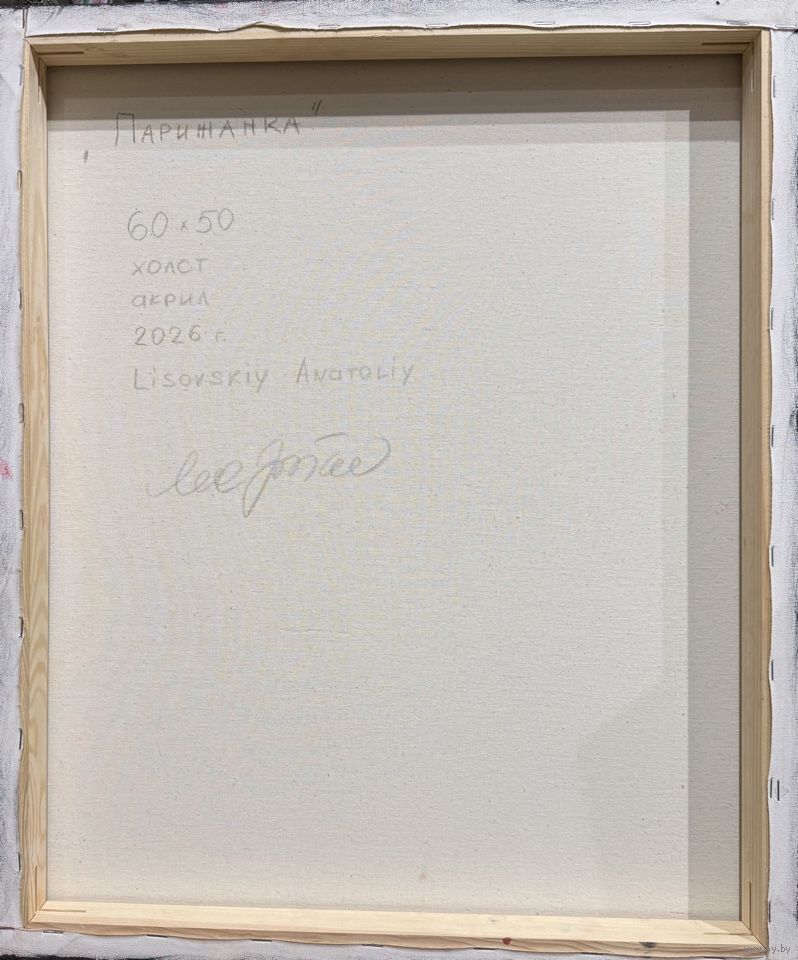 "Парижанка"
60 x 50
холст
акрил
2026 г.
Lisovskiy Anatoliy